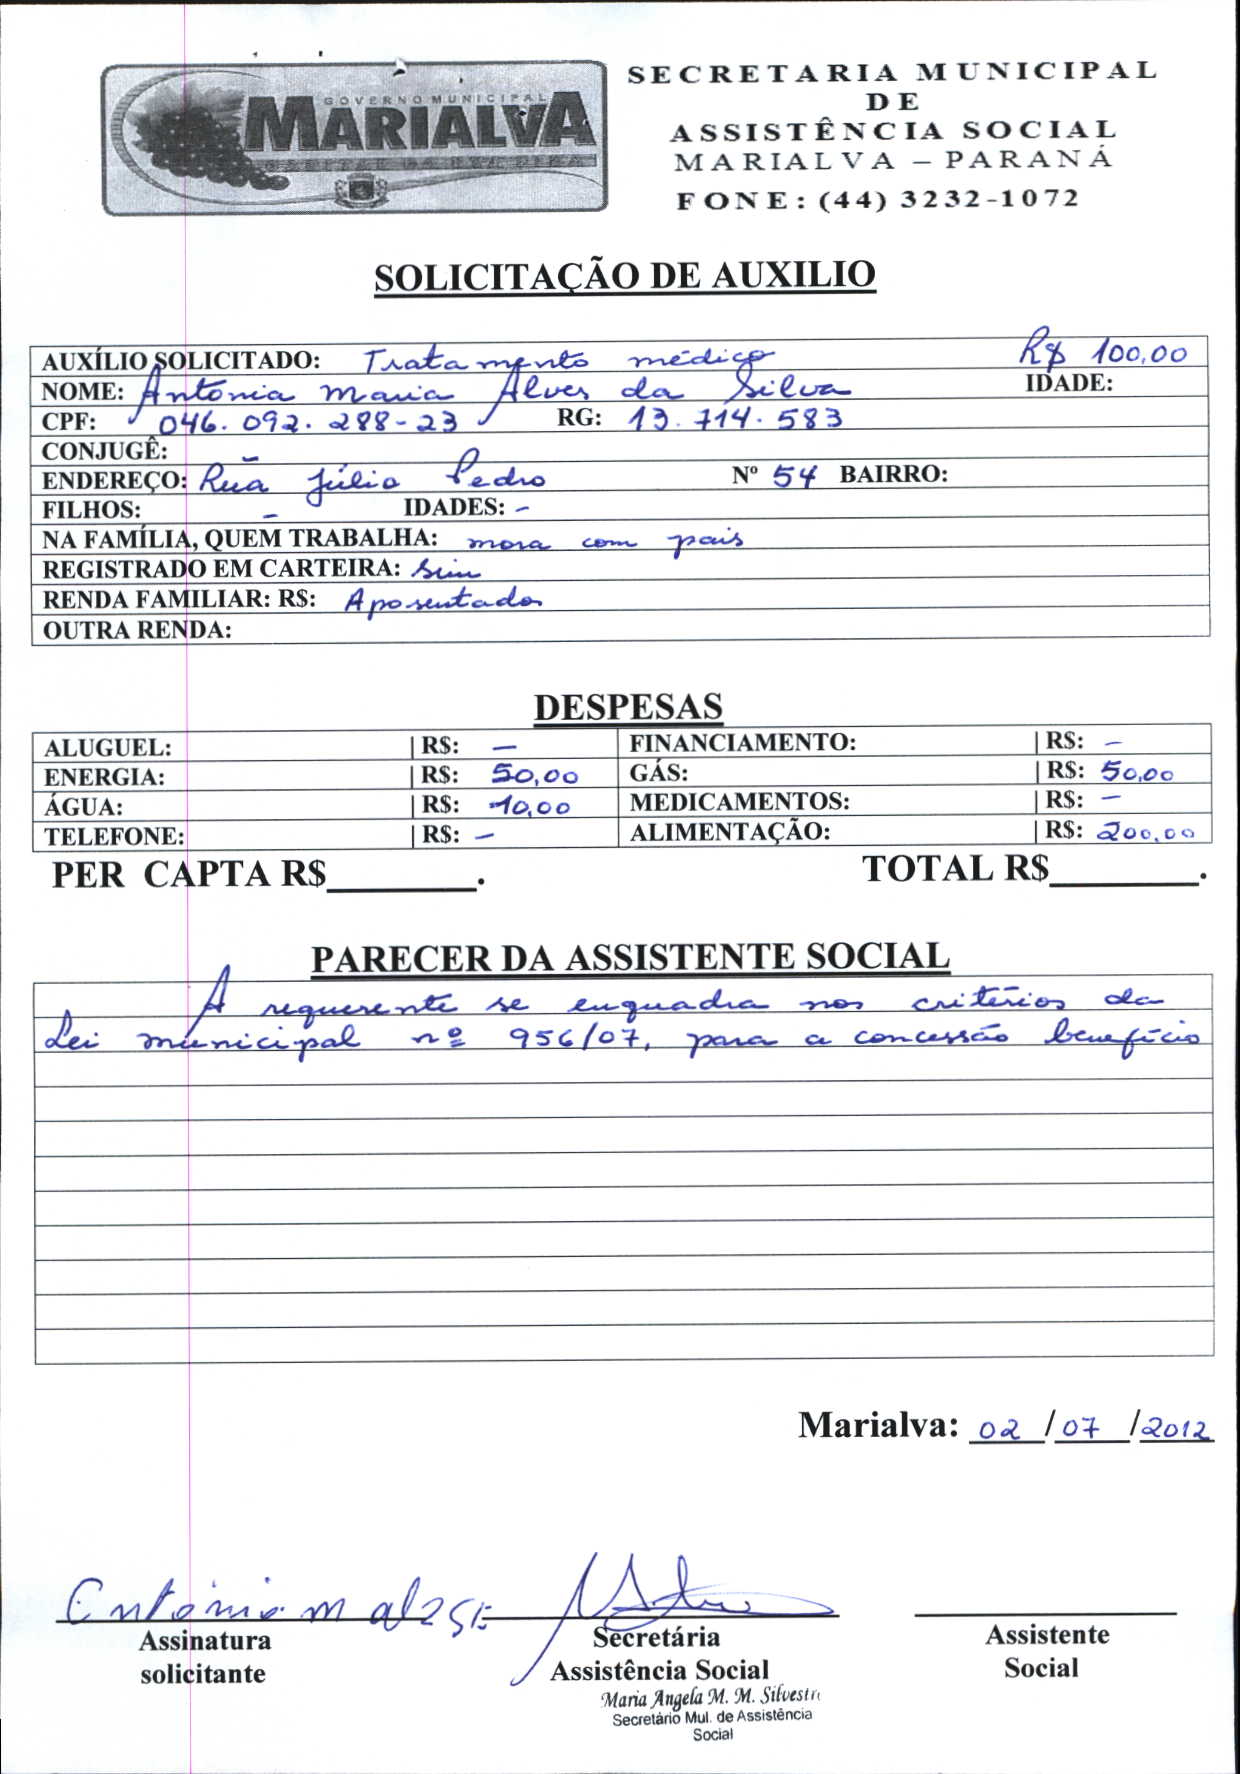 GOVERNO MUNICIPAL
MARIALVA
SECRETARIA MUNICIPAL
DE
ASSISTÊNCIA SOCIAL
MARIALVA – PARANÁ
FONE: (44) 3232-1072
SOLICITAÇÃO DE AUXILIO
AUXÍLIO SOLICITADO: Tratamento médico R$ 100,00
NOME: Antonia Maria Alves da Silva IDADE:
CPF: 046.092.288-23 RG: 13.714.583
CONJUGÊ: –
ENDEREÇO: Rua Júlio Pedro Nº 54 BAIRRO:
FILHOS: – IDADES: –
NA FAMÍLIA, QUEM TRABALHA: mora com pais
REGISTRADO EM CARTEIRA: Sim
RENDA FAMILIAR: R$: Aposentados
OUTRA RENDA:
DESPESAS
ALUGUEL: | R$: – FINANCIAMENTO: | R$: –
ENERGIA: | R$: 50,00 GÁS: | R$: 50,00
ÁGUA: | R$: 10,00 MEDICAMENTOS: | R$: –
TELEFONE: | R$: – ALIMENTAÇÃO: | R$: 200,00
PER CAPTA R$________. TOTAL R$________.
PARECER DA ASSISTENTE SOCIAL
A requerente se enquadra nos critérios da
Lei municipal nº 956/07, para a concessão benefício
Marialva: 02 /07 /2012
Antônia m
Assinatura Secretária Assistente
solicitante Assistência Social Social
Maria Angela M. M. Silvestre
Secretário Mul. de Assistência
Social